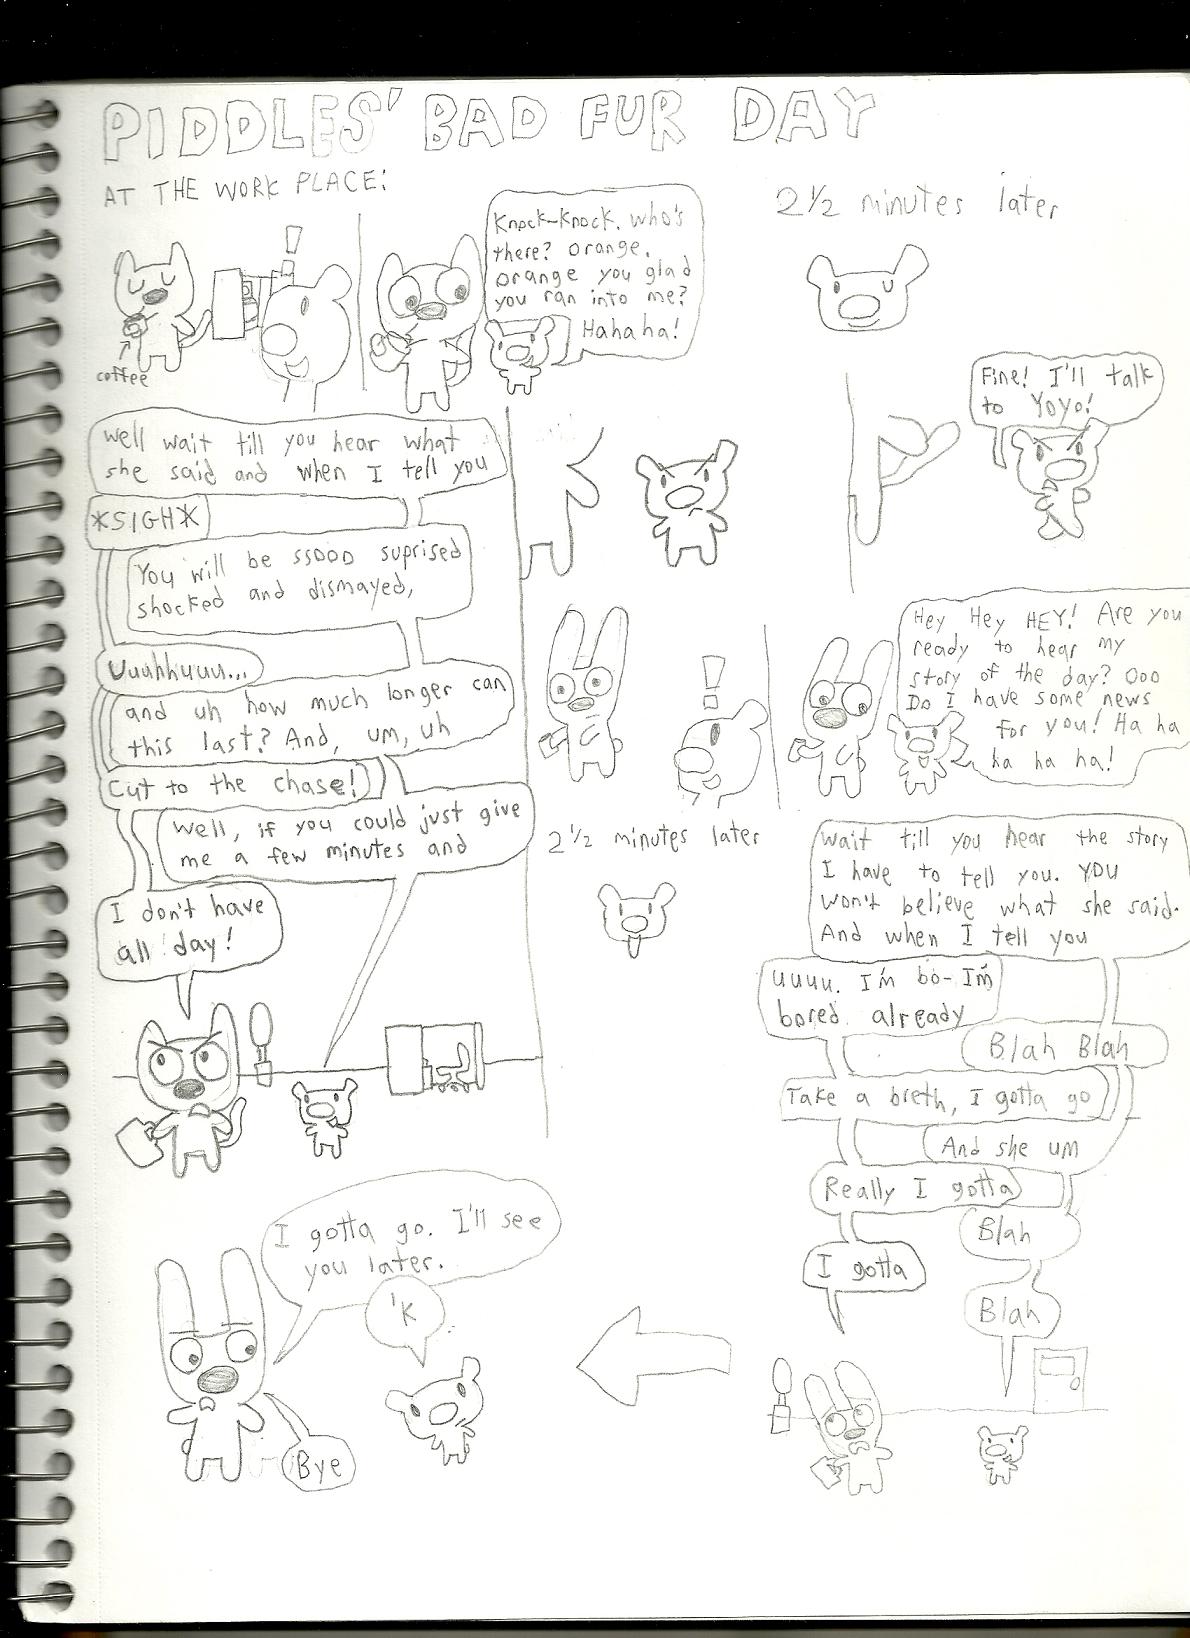 PIDDLES' BAD FUR DAY
AT THE WORK PLACE:
coffee
Knock-Knock. who's
there? orange.
orange you glad
you ran into me?
Hahaha!
2 1/2 minutes later
Well wait till you hear what
she said and when I tell you
*SIGH*
You will be SSOOO suprised
shocked and dismayed,
Uuuhhuuu...
and uh how much longer can
this last? And, um, uh
Cut to the chase!
Well, if you could just give
me a few minutes and
I don't have
all day!
Fine! I'll talk
to Yoyo!
Hey Hey HEY! Are you
ready to hear my
story of the day? Ooo
Do I have some news
for you! Ha ha
ha ha ha!
2 1/2 minutes later
Wait till you hear the story
I have to tell you. YOU
won't believe what she said.
And when I tell you
uuuu. I'm bo- I'm
bored already
Blah Blah
Take a breth, I gotta go
And she um
Really I gotta
Blah
I gotta
Blah
I gotta go. I'll see
you later.
'K
Bye